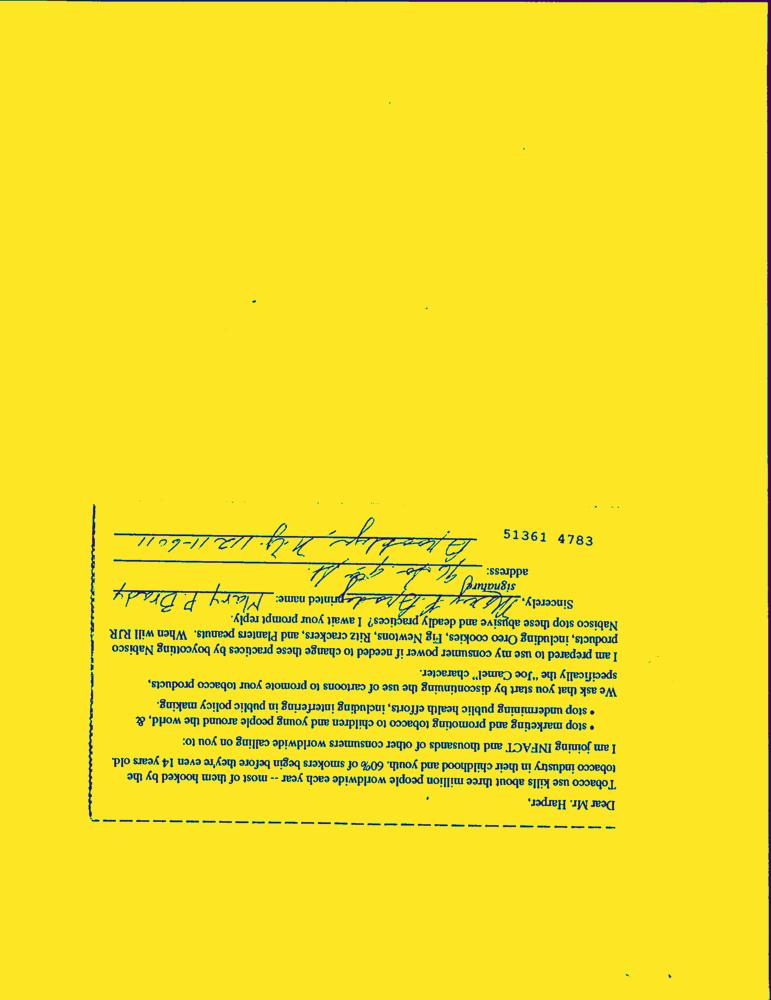 Dear Mr. Harper,
Tobacco use kills about three million people worldwide each year -- most of them hooked by the
tobacco industry in their childhood and youth. 60% of smokers begin before they're even 14 years old.
I am joining INFACT and thousands of other consumers worldwide calling on you to:
• stop marketing and promoting tobacco to children and young people around the world, &
• stop undermining public health efforts, including interfering in public policy making.
We ask that you start by discontinuing the use of cartoons to promote your tobacco products,
specifically the "Joe Camel" character.
I am prepared to use my consumer power if needed to change these practices by boycotting Nabisco
products, including Oreo cookies, Fig Newtons, Ritz crackers, and Planters peanuts. When will RJR
Nabisco stop these abusive and deadly practices? I await your prompt reply.
Sincerely, Mary P. Brady printed name: Mary P. Brady
signature
address: 96 St.
Brooklyn, N.Y. 11211-6011
51361 4783